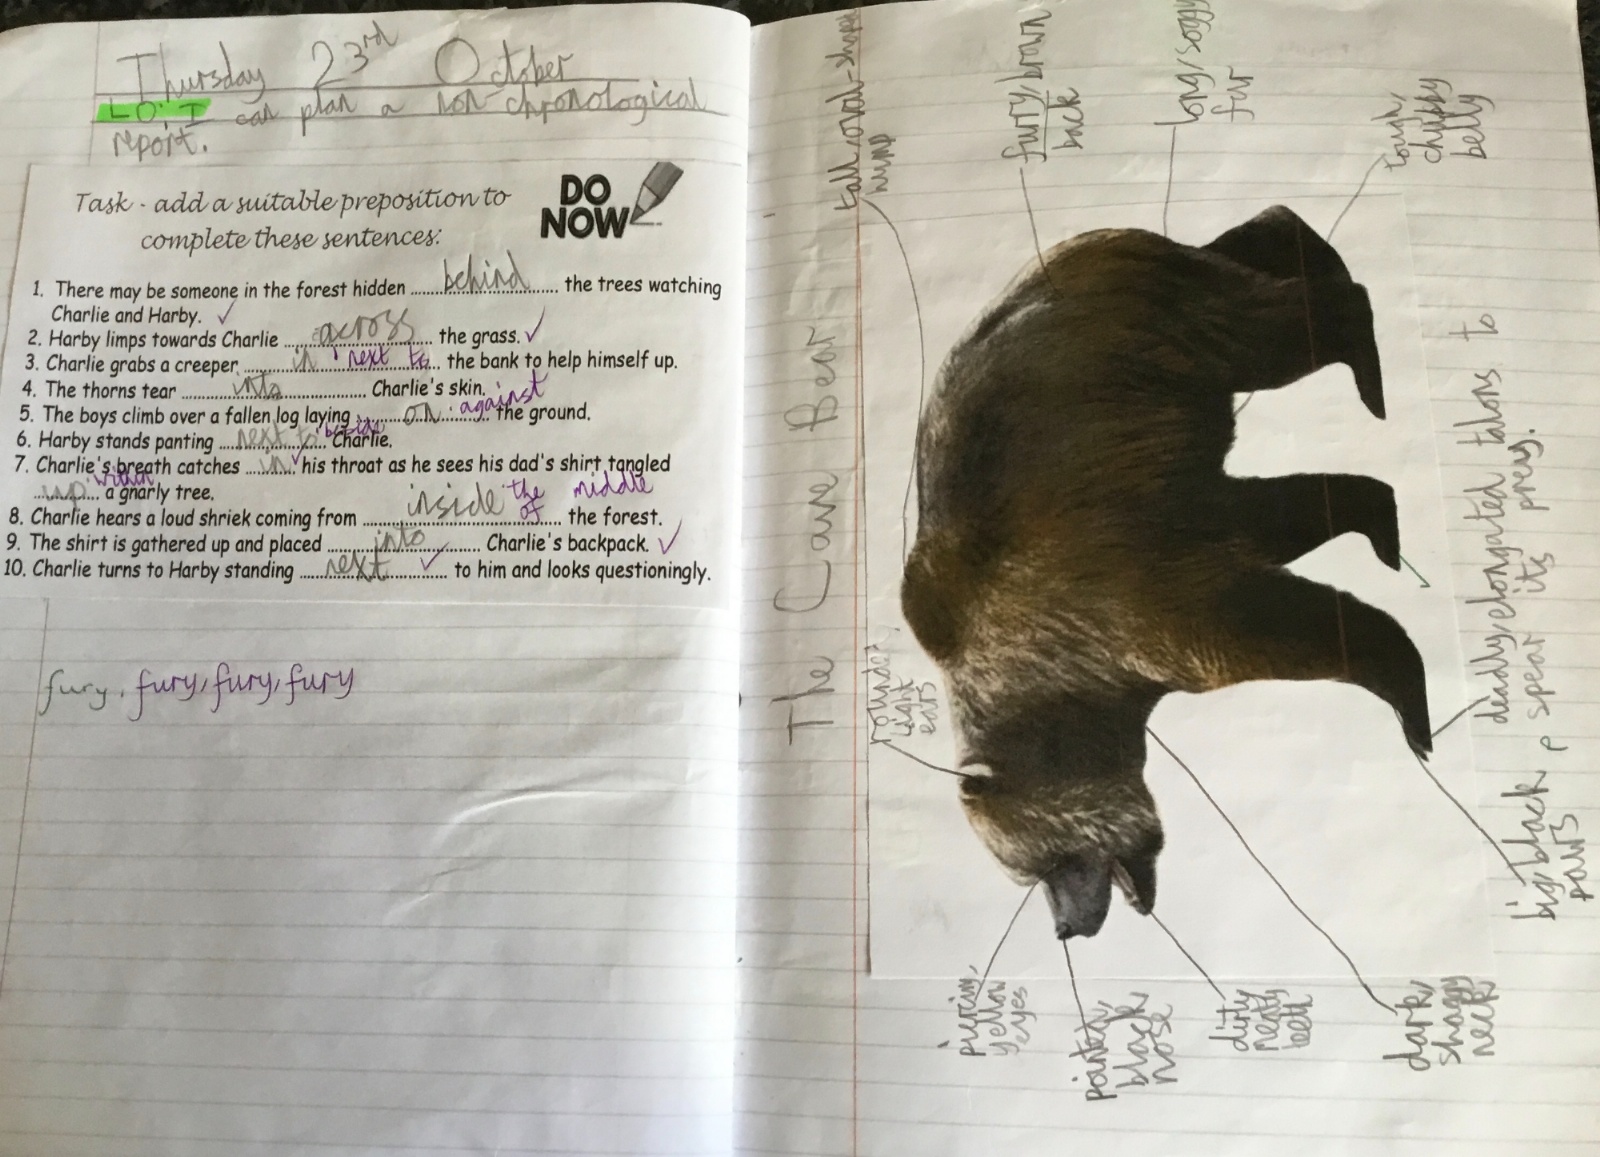 Thursday 23rd October
LO: I can plan a non-chronological
report.
Task - add a suitable preposition to
complete these sentences:
DO
NOW
1. There may be someone in the forest hidden ........behind........ the trees watching
Charlie and Harby. ✓
2. Harby limps towards Charlie ........across........ the grass. ✓
3. Charlie grabs a creeper ........in next to........ the bank to help himself up.
4. The thorns tear ........into........ Charlie's skin.
5. The boys climb over a fallen log laying ........on against........ the ground.
6. Harby stands panting ........next to beside........ Charlie.
7. Charlie's breath catches ....in.... ✓ his throat as he sees his dad's shirt tangled
....up within.... a gnarly tree.
8. Charlie hears a loud shriek coming from ........inside the middle of........ the forest.
9. The shirt is gathered up and placed ........into........ Charlie's backpack. ✓
10. Charlie turns to Harby standing ........next........ ✓ to him and looks questioningly.
fury, fury, fury, fury
The Cave Bear
tall, oval-shape
hump
furry, brown
back
long, soggy
fur
tough,
chubby
belly
rounded,
light
ears
deadly, elongated talons to
spear its prey.
big, black
paws
p
piercing,
yellow
eyes
pointed,
black,
nose
dirty
meaty
teeth
dark,
shaggy
neck